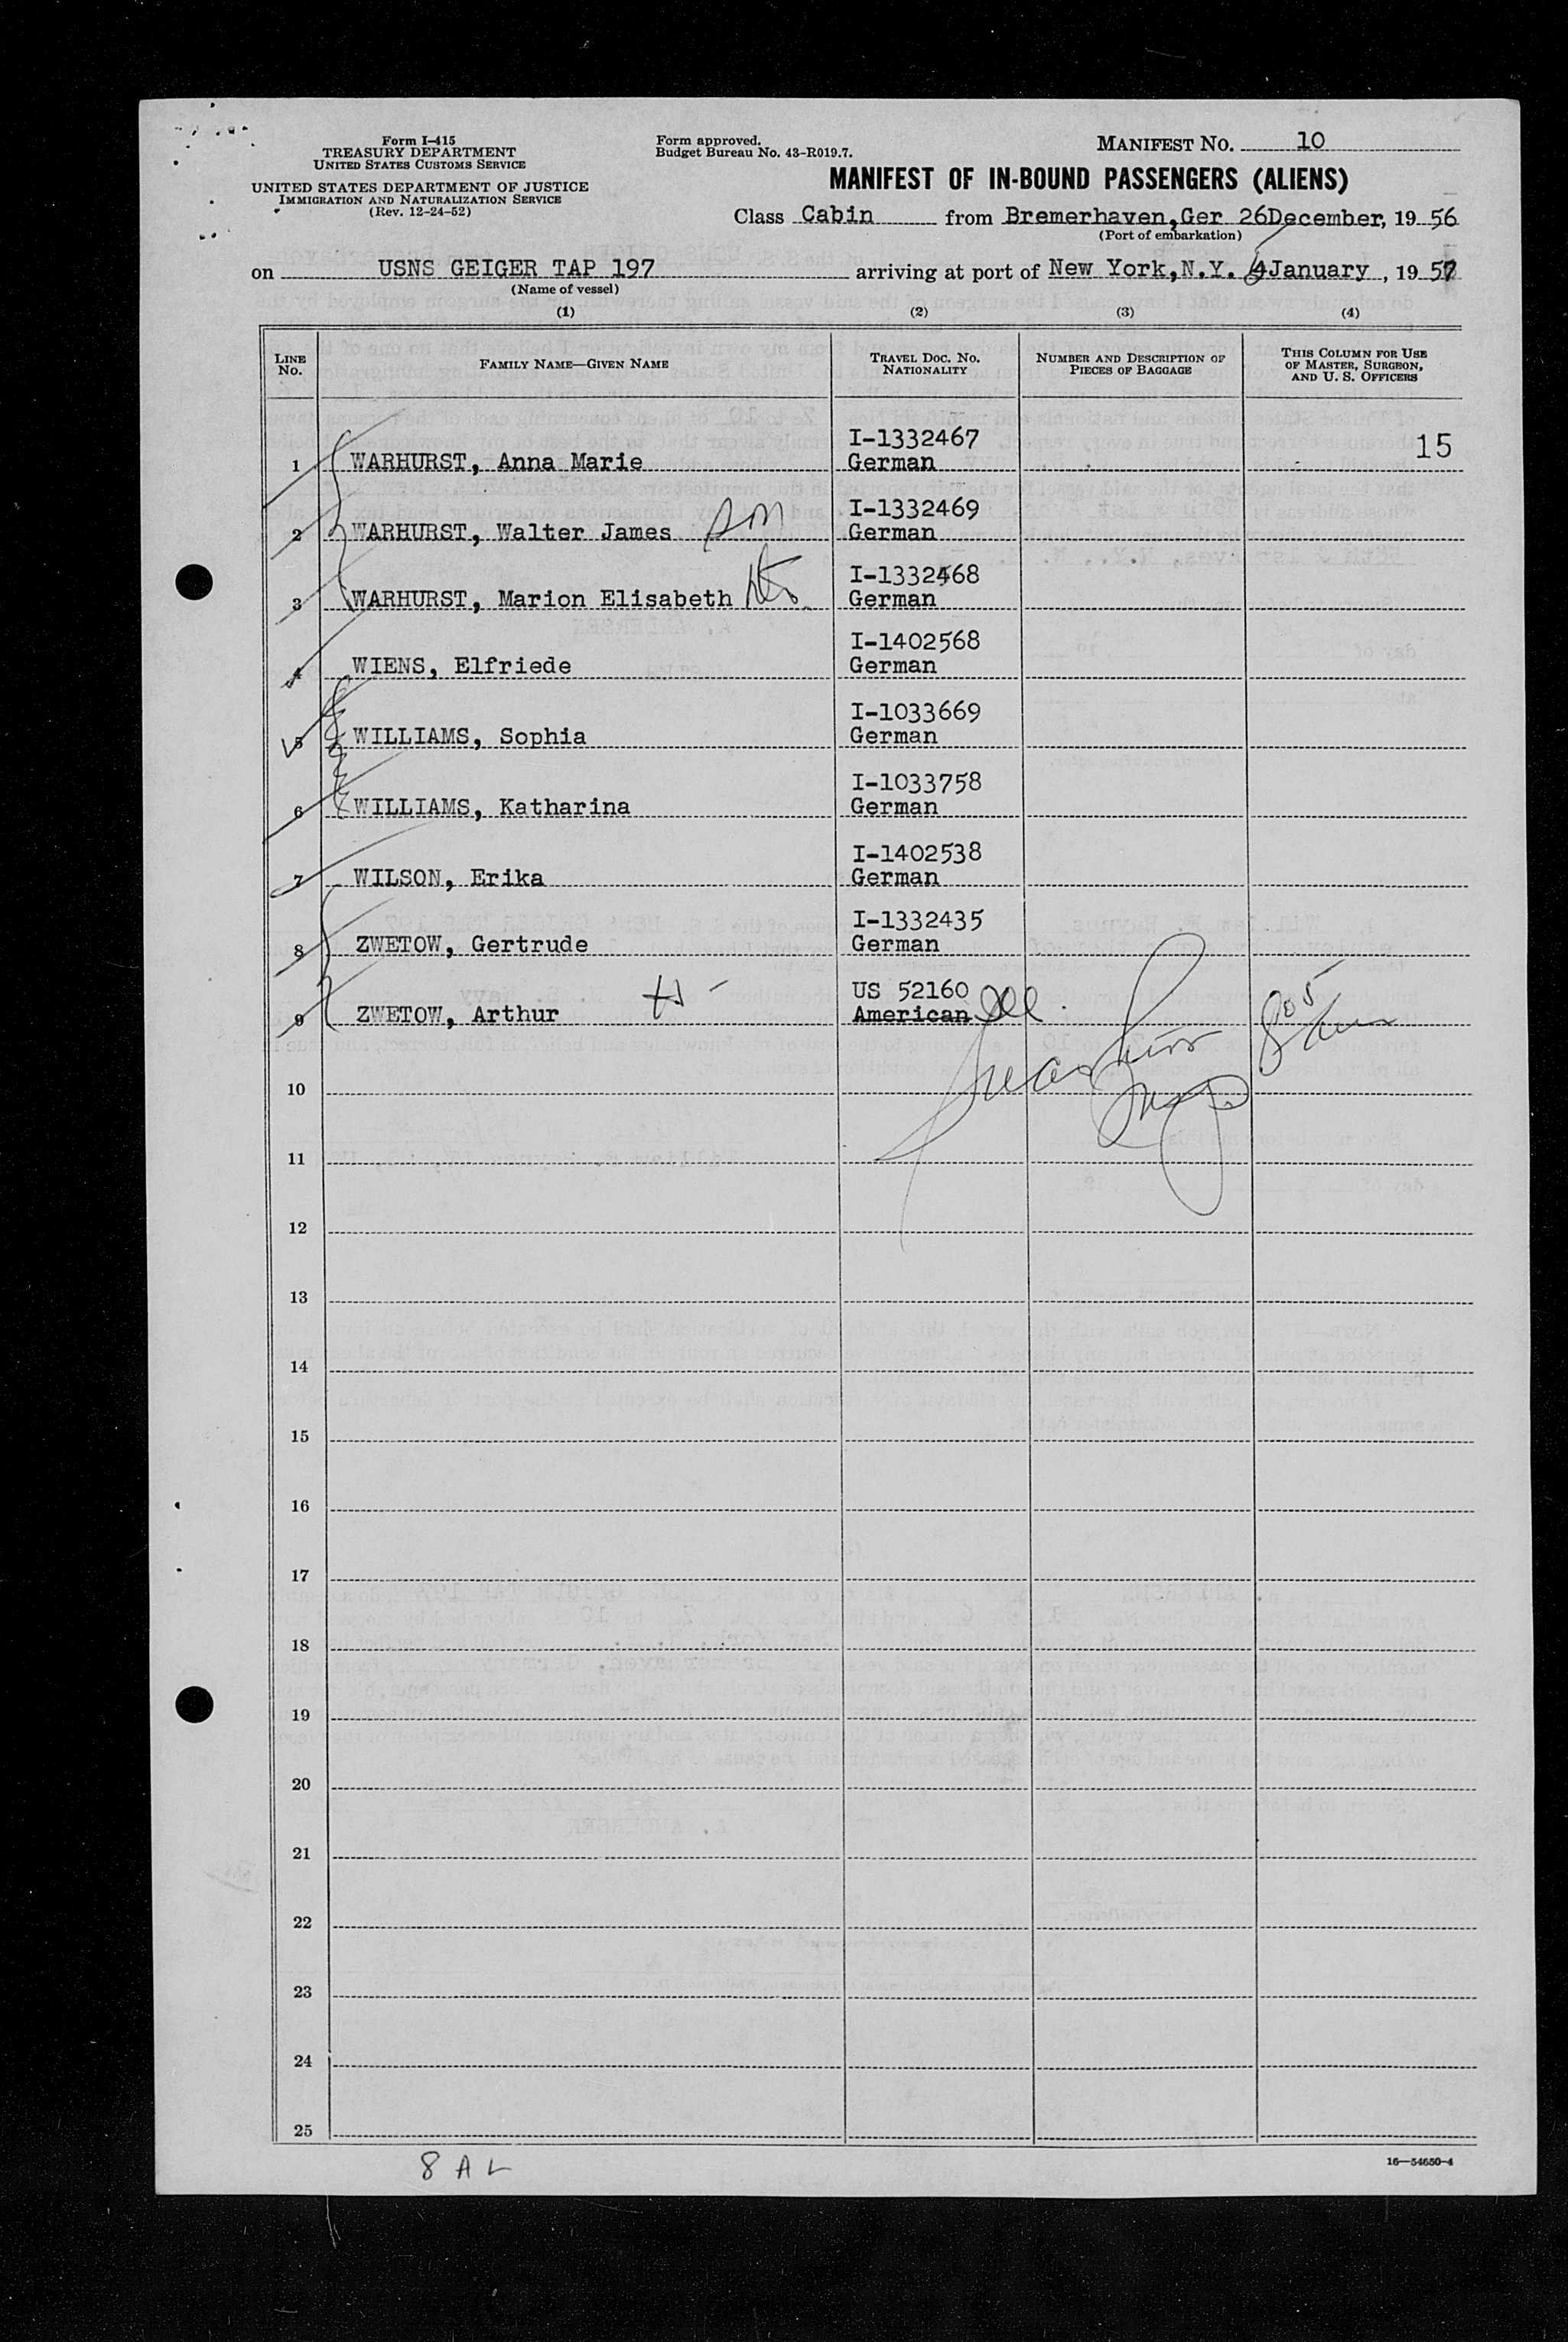 Form I-415
TREASURY DEPARTMENT
UNITED STATES CUSTOMS SERVICE
UNITED STATES DEPARTMENT OF JUSTICE
IMMIGRATION AND NATURALIZATION SERVICE
(Rev. 12-24-52)
Form approved.
Budget Bureau No. 43-R019.7.
MANIFEST NO. 10
MANIFEST OF IN-BOUND PASSENGERS (ALIENS)
Class Cabin from Bremerhaven,Ger 26December, 19 56
(Port of embarkation)
on USNS GEIGER TAP 197 arriving at port of New York,N.Y. January, 1957
(Name of vessel)
(1) (2) (3) (4)
LINE NO. FAMILY NAME—GIVEN NAME TRAVEL DOC. NO. NATIONALITY NUMBER AND DESCRIPTION OF PIECES OF BAGGAGE THIS COLUMN FOR USE OF MASTER, SURGEON, AND U. S. OFFICERS
I-1332467 15
1 WARHURST, Anna Marie German
I-1332469
2 WARHURST, Walter James German
I-1332468
3 WARHURST, Marion Elisabeth German
I-1402568
4 WIENS, Elfriede German
I-1033669
5 WILLIAMS, Sophia German
I-1033758
6 WILLIAMS, Katharina German
I-1402538
7 WILSON, Erika German
I-1332435
8 ZWETOW, Gertrude German
US 52160
9 ZWETOW, Arthur American
10
11
12
13
14
15
16
17
18
19
20
21
22
23
24
25
8 A L
16—54650-4